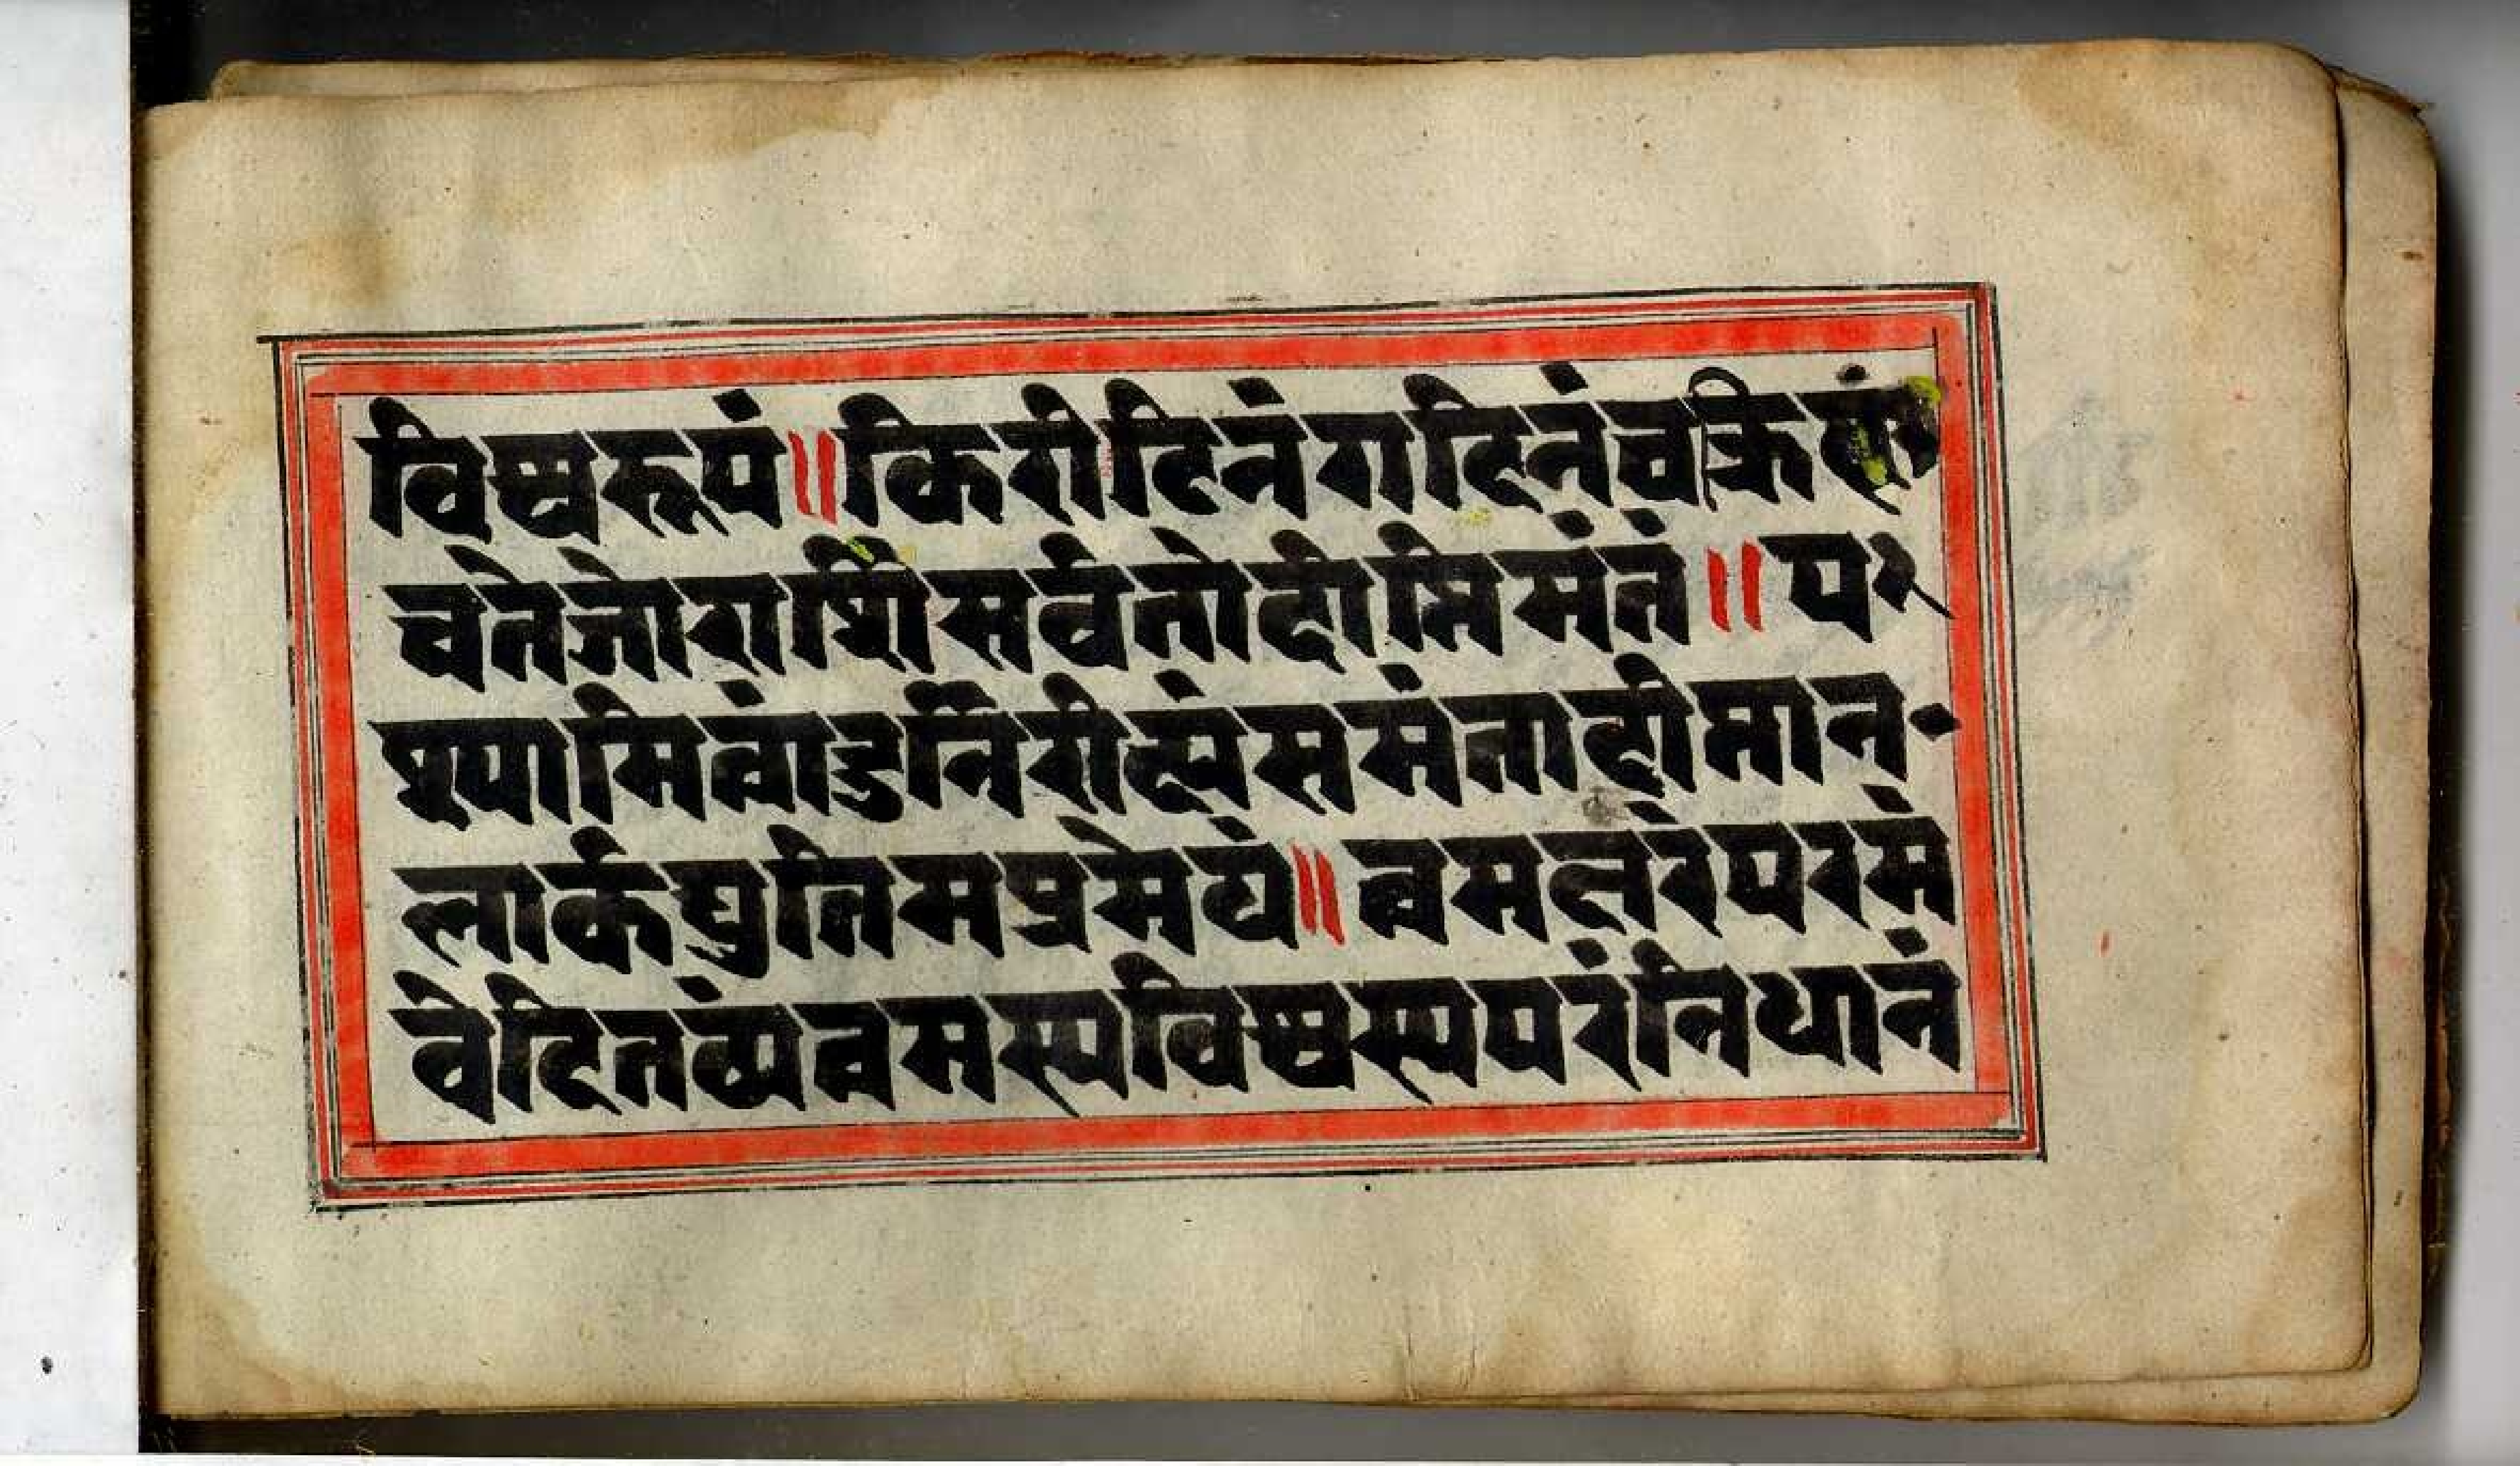 विश्वरूपं॥किरीटिनंगदिनंचक्रिणं
चतेजोराशिंसर्वतोदीप्तिमंतं॥प
श्यामित्वांदुर्निरीक्ष्यंसमंतादीप्तान
लार्कद्युतिमप्रमेयं॥त्वमक्षरंपरमं
वेदितव्यंत्वमस्यविश्वस्यपरंनिधानं